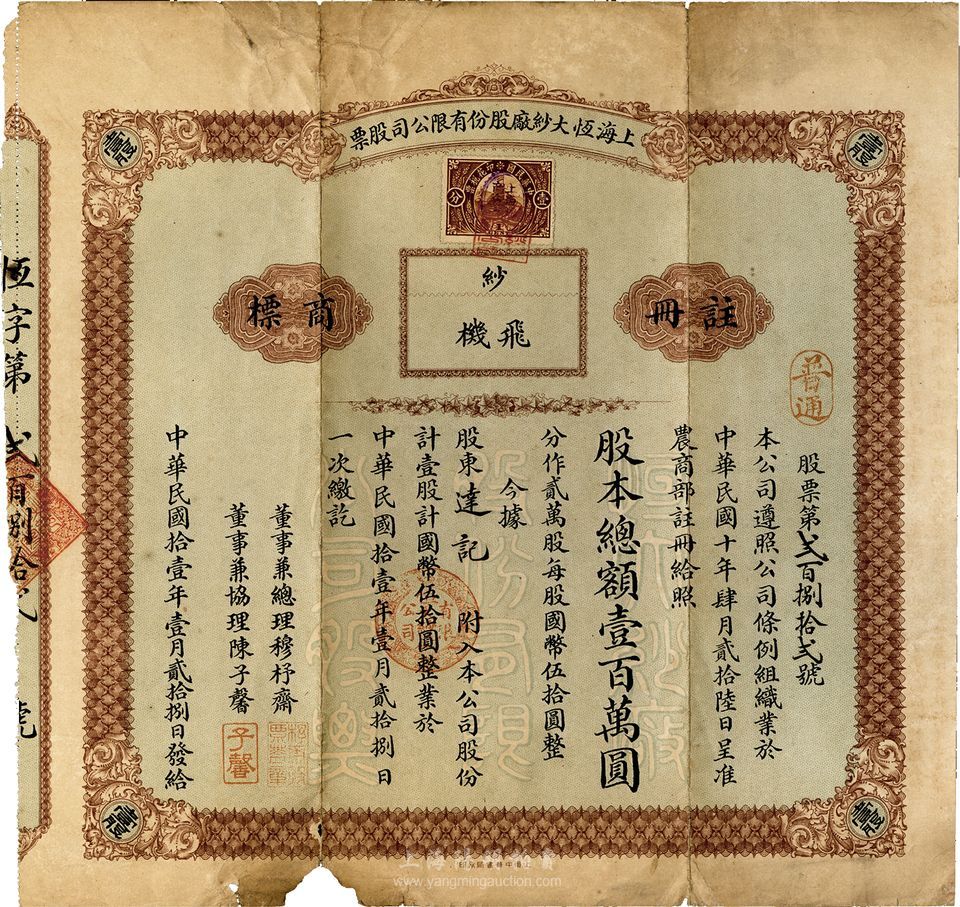 上海恆大紗廠股份有限公司股票
中華民國印花稅票
壹
分
註冊
紗
飛機
商標
普通
股票第貳百捌拾貳號
本公司遵照公司條例組織業於
中華民國十年肆月貳拾陸日呈准
農商部註冊給照
股本總額壹百萬圓
分作貳萬股每股國幣伍拾圓整
今據
股東達記附入本公司股份
計壹股計國幣伍拾圓整業於
中華民國拾壹年壹月貳拾捌日
一次繳訖
董事兼總理穆杼齋
董事兼協理陳子馨
子馨
中華民國拾壹年壹月貳拾捌日發給
恆字第貳百捌拾貳號
www.yangmingauction.com